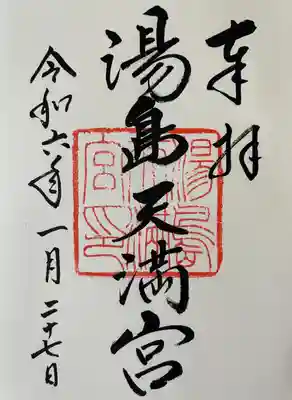 奉拝
湯島天満宮
令和六年一月二十七日
湯島
天満
宮印